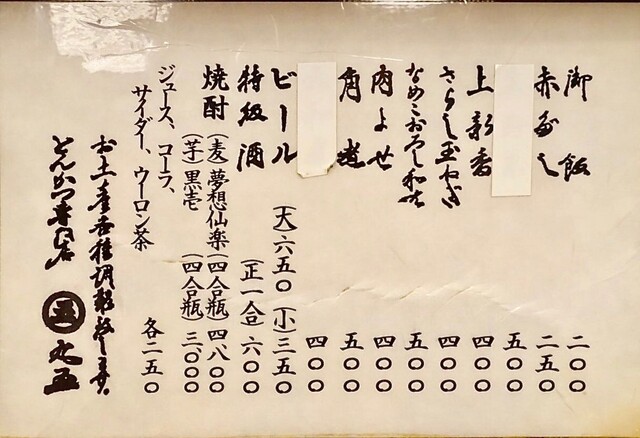 御飯 二〇〇
赤だし 二五〇
五〇〇
上新香 四〇〇
さらし玉ねぎ 四〇〇
なめこおろし和え 五〇〇
肉よせ 四〇〇
角煮 五〇〇
四〇〇
ビール (大)六五〇 (小)三五〇
特級酒 (正一合)六〇〇
焼酎 (麦)夢想仙楽(四合瓶)四八〇〇
(芋)黒壱(四合瓶)三〇〇〇
ジュース、コーラ、
サイダー、ウーロン茶 各二五〇
お土産各種調製致します
とんかつ専門店 丸五